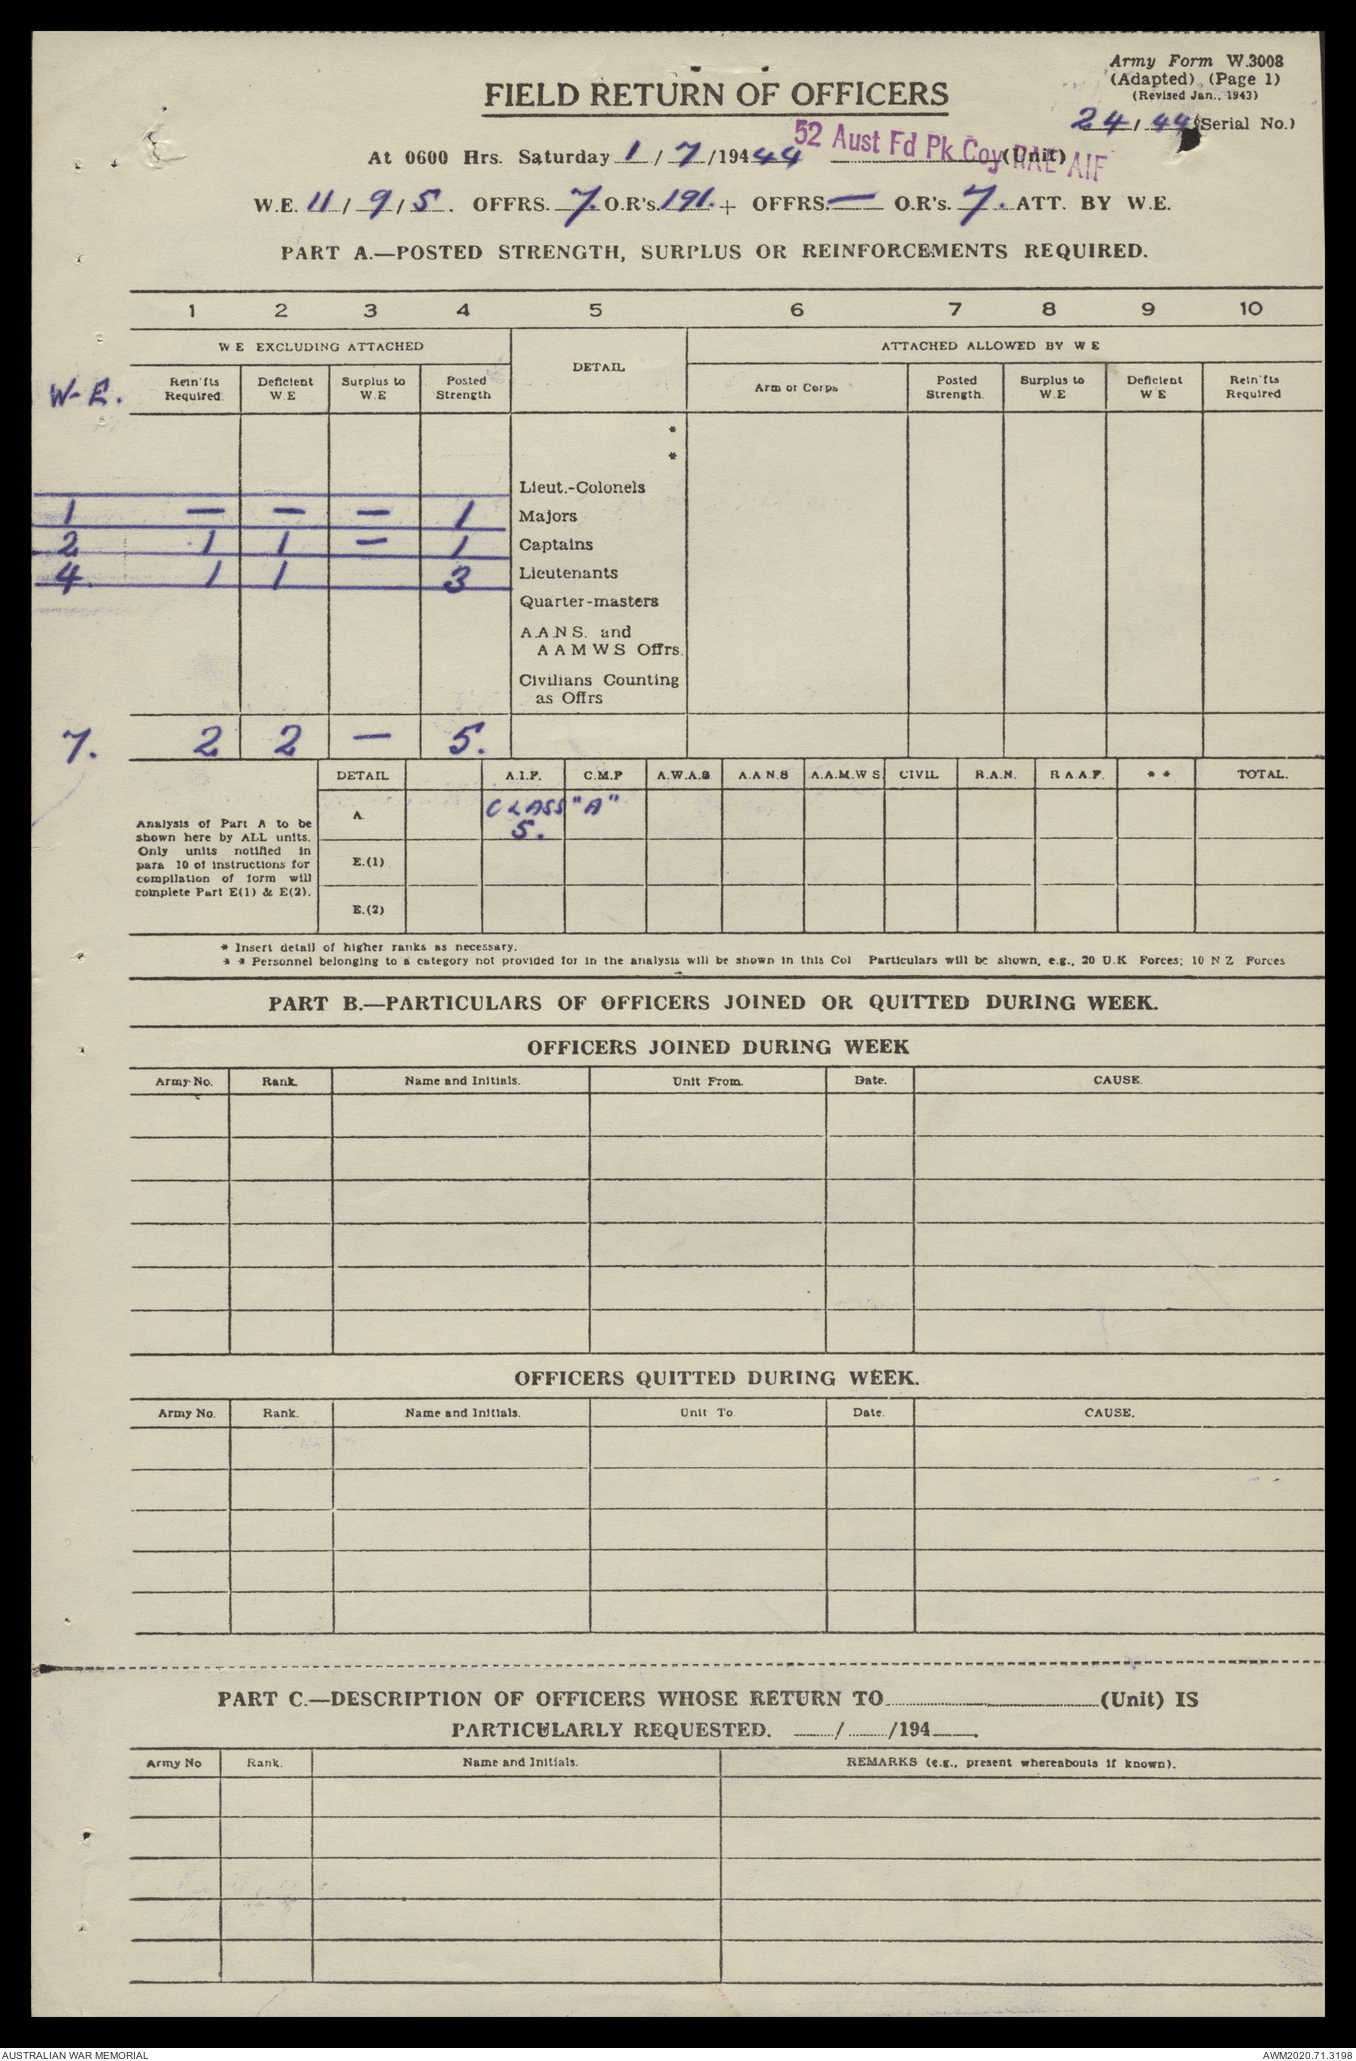 Army Form W.3008
(Adapted) (Page 1)
(Revised Jan., 1943)
FIELD RETURN OF OFFICERS
24 / 44 (Serial No.)
At 0600 Hrs. Saturday 1 / 7 /19444 52 Aust Fd Pk Coy RAE AIF (Unit)
W.E. 11 / 9 / 5 . OFFRS. 7. O.R's. 191. + OFFRS. — O.R's. 7. ATT. BY W.E.
PART A.—POSTED STRENGTH, SURPLUS OR REINFORCEMENTS REQUIRED.
1 2 3 4 5 6 7 8 9 10
W E EXCLUDING ATTACHED DETAIL ATTACHED ALLOWED BY W E
W-E. Rein'fts Required. Deficient W.E Surplus to W.E Posted Strength Arm or Corps Posted Strength. Surplus to W.E Deficient W E Rein'fts Required
*
*
Lieut.-Colonels
1 — — — 1 Majors
2 1 1 — 1 Captains
4. 1 1 3 Lieutenants
Quarter-masters
A.A.N S. and
A A M W S Offrs.
Civilians Counting
as Offrs
7. 2 2 — 5.
DETAIL A.I.F. C.M.P A.W.A.S A.A N.S A.A.M.W S CIVIL R.A.N. R A.A.F. * * TOTAL.
Analysis of Part A to be
shown here by ALL units.
Only units notified in
para 10 of instructions for
compilation of form will
complete Part E(1) & E(2).
A. CLASS "A"
5.
E.(1)
E.(2)
* Insert detail of higher ranks as necessary.
* * Personnel belonging to a category not provided for in the analysis will be shown in this Col Particulars will be shown, e.g., 20 U.K Forces; 10 N Z Forces
PART B.—PARTICULARS OF OFFICERS JOINED OR QUITTED DURING WEEK.
OFFICERS JOINED DURING WEEK
Army No. Rank. Name and Initials. Unit From. Date. CAUSE.
OFFICERS QUITTED DURING WEEK.
Army No. Rank. Name and Initials. Unit To. Date. CAUSE.
PART C.—DESCRIPTION OF OFFICERS WHOSE RETURN TO (Unit) IS
PARTICULARLY REQUESTED. / /194 .
Army No Rank. Name and Initials. REMARKS (e.g., present whereabouts if known).
AUSTRALIAN WAR MEMORIAL AWM2020.71.3198